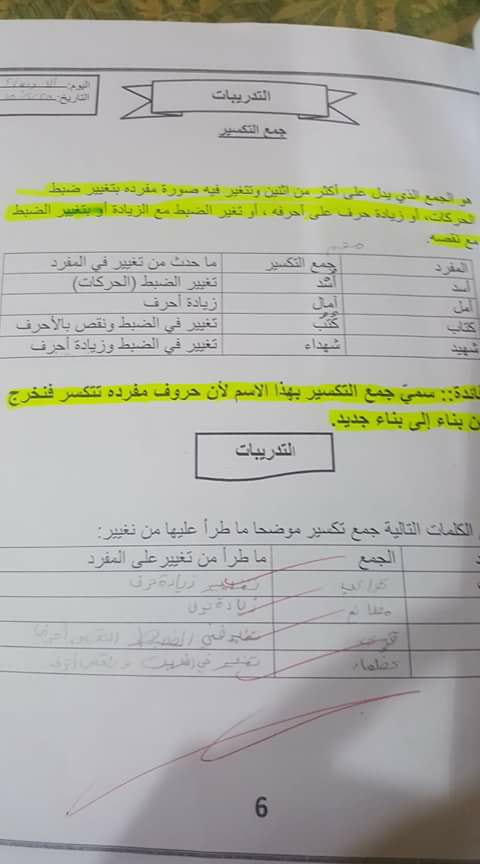 اليوم:
التاريخ:
التدريبات
جمع التكسير
هو الجمع الذي يدل على أكثر من اثنين وتتغير فيه صورة مفرده بتغيير ضبط
الحركات، أو زيادة حرف على أحرفه ، أو تغير الضبط مع الزيادة أو بتغيير الضبط
مع نقصه.
المفرد جمع التكسير ما حدث من تغيير في المفرد
أسد أُسُد تغيير الضبط (الحركات)
أمل آمال زيادة أحرف
كتاب كُتُب تغيير في الضبط ونقص بالأحرف
شهيد شهداء تغيير في الضبط وزيادة أحرف
ائدة:: سميّ جمع التكسير بهذا الاسم لأن حروف مفرده تتكسر فنخرج
ن بناء إلى بناء جديد.
التدريبات
الكلمات التالية جمع تكسير موضحا ما طرأ عليها من تغيير:
الجمع ما طرأ من تغيير على المفرد
زيادة حرف
زيادة
تغيير في الضبط
تغيير في ونقص أحرف
6